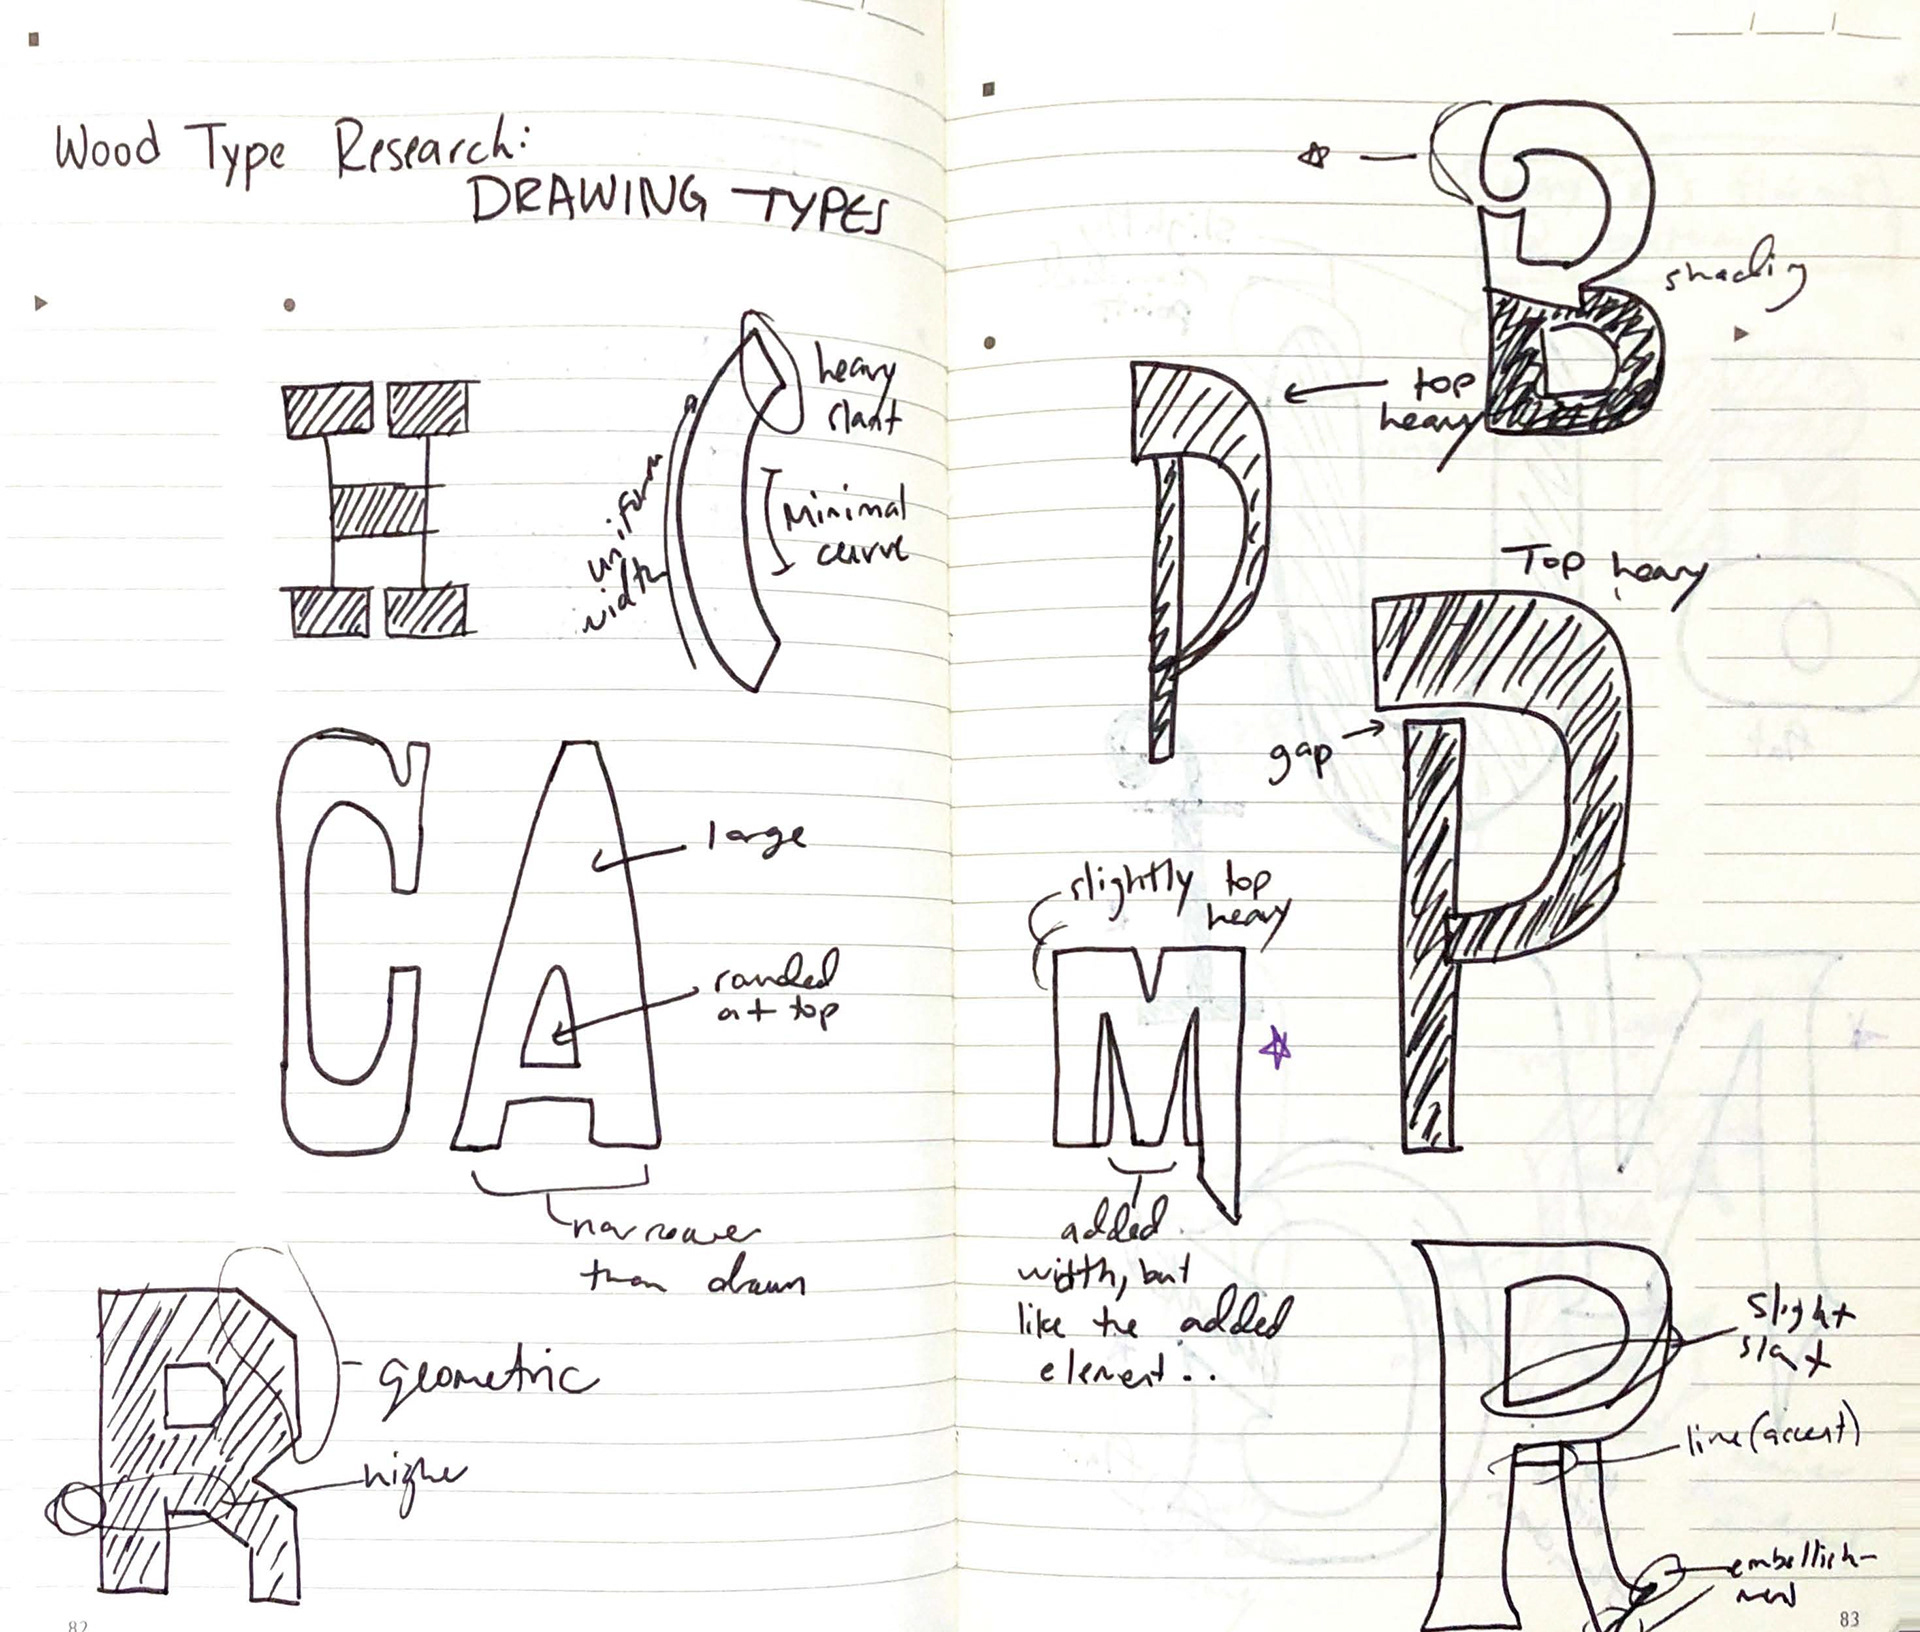 Wood Type Research:
DRAWING TYPES
H
(
heavy
slant
uniform
width
Minimal
curve
C A
large
rounded
at top
narrower
than drawn
R
geometric
higher
82
B
shading
P
top
heavy
Top heavy
P
gap
slightly top
heavy
M
added
width, but
like the added
element..
R
slight
slant
line (accent)
embellish-
ment
83